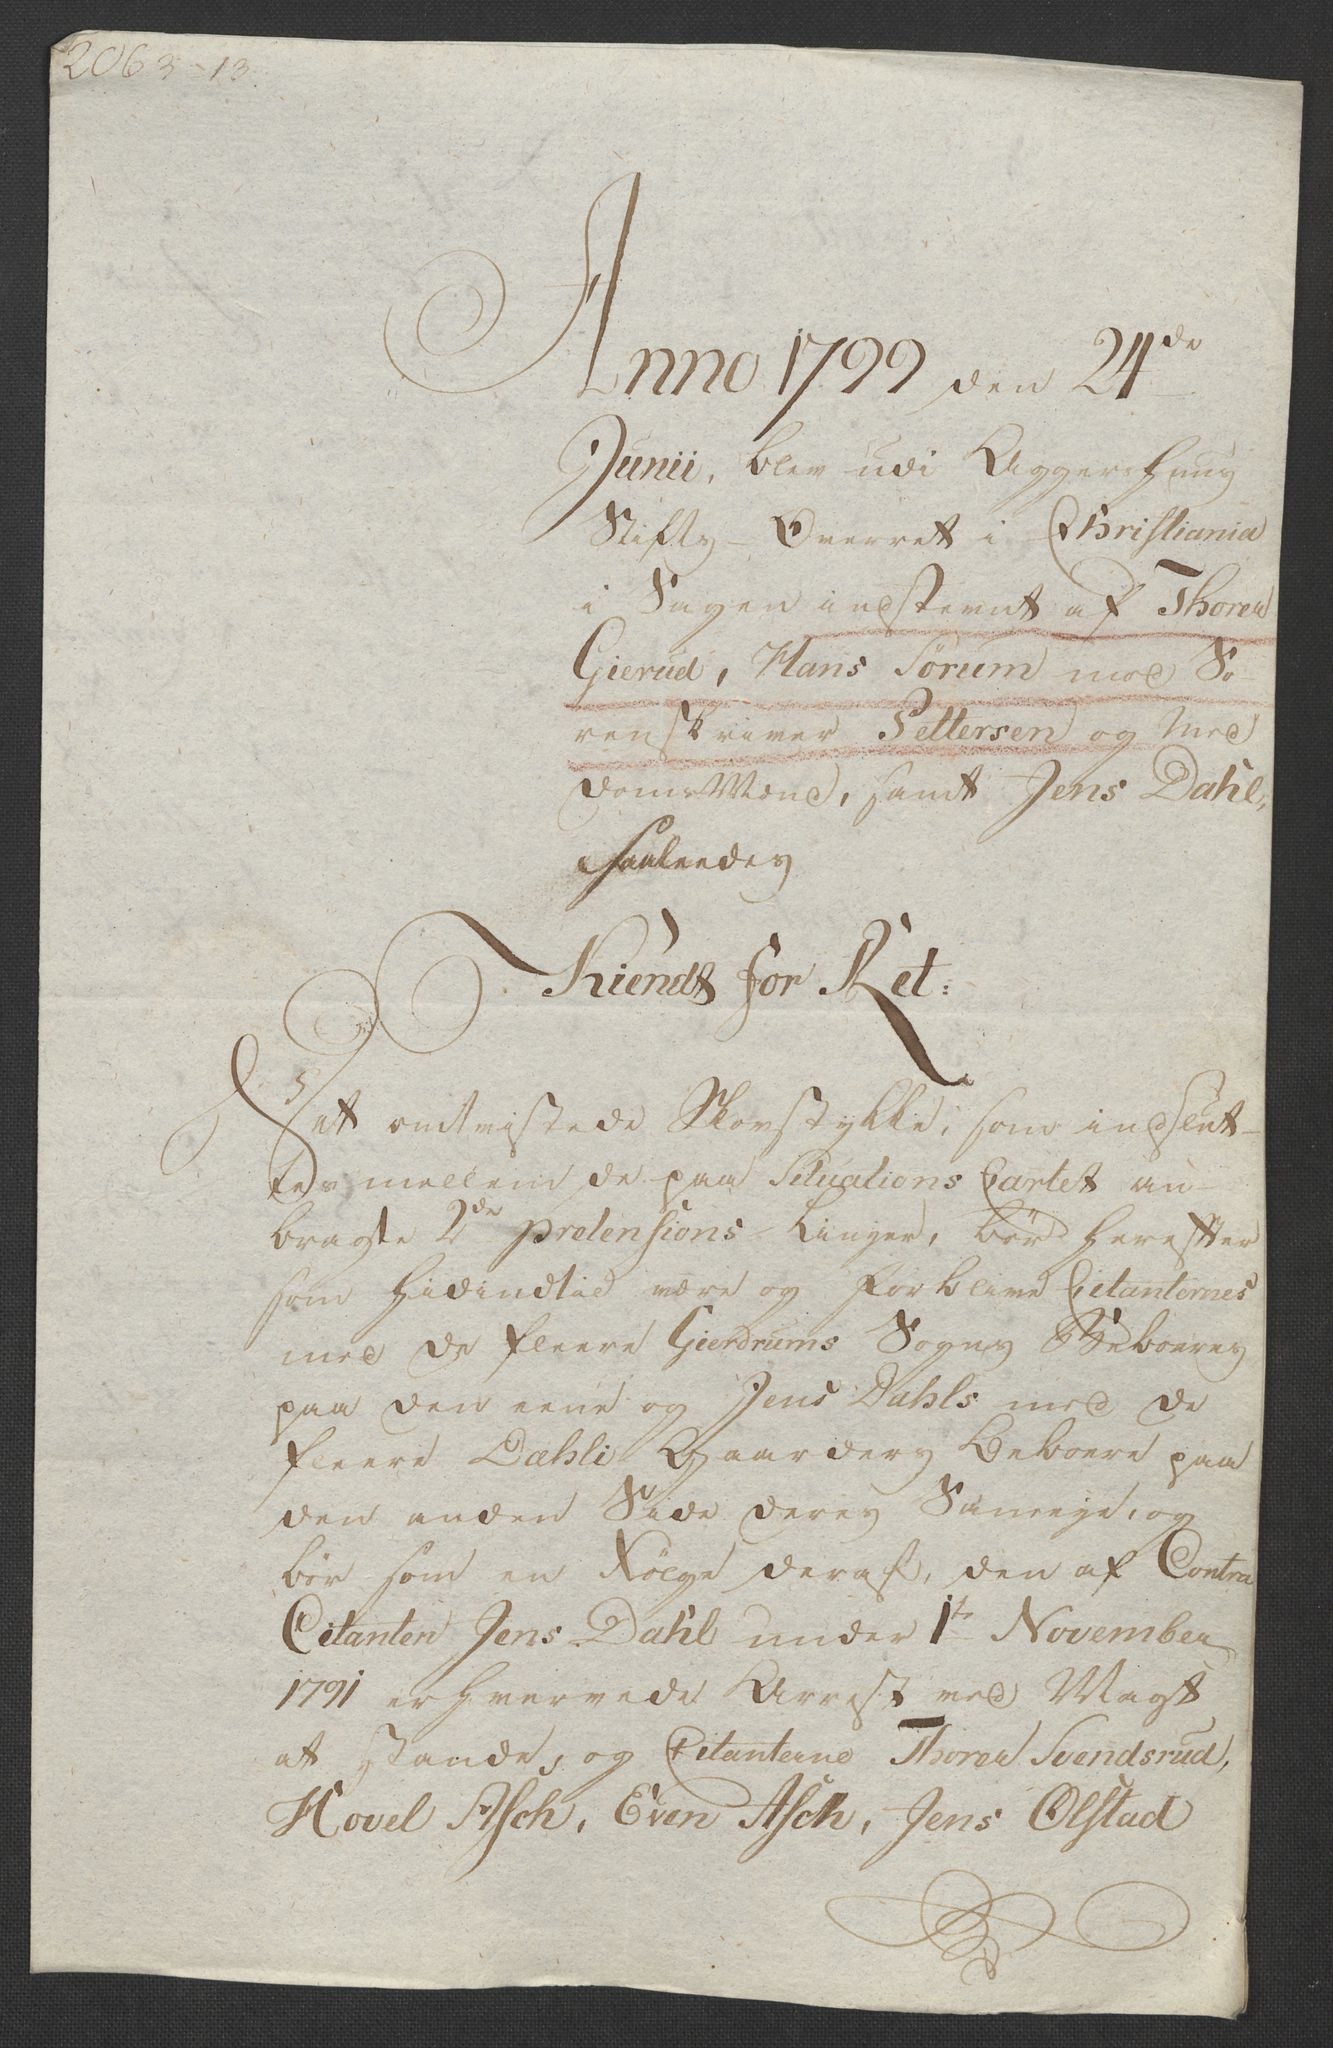 2063-13
Anno 1799 den 24de
Junii, blev udi Aggershuus
Stifts-Overret i Christiania
i Sagen indstevnt af Thorer
Gierud, Hans Sörum mod So-
renskriver Pettersen og Med
domsMænd, samt Jens Dahl,
saaleedes
Kiendt for Ret:
Det omtvistede Skovstykke, som indslut-
tes mellem de paa Situations Cartet an-
bragte 2de prætensions-Linjer, bör herefter
som hidindtid være og forblive Citanternes
med de fleere Gierdrums Sogns Beboeres
paa den eene og Jens Dahls med de
fleere Dæhli Gaarders Beboere paa
den anden Side deres Sameye, og
bör som en Fölge deraf, den af Contra
Citanten Jens Dahl under 1te November
1791 erhvervede Arrest ved Magt
at stande, og Citanterne Thorer Svendsrud,
Hovel Asch, Even Asch, Jens Ølstad